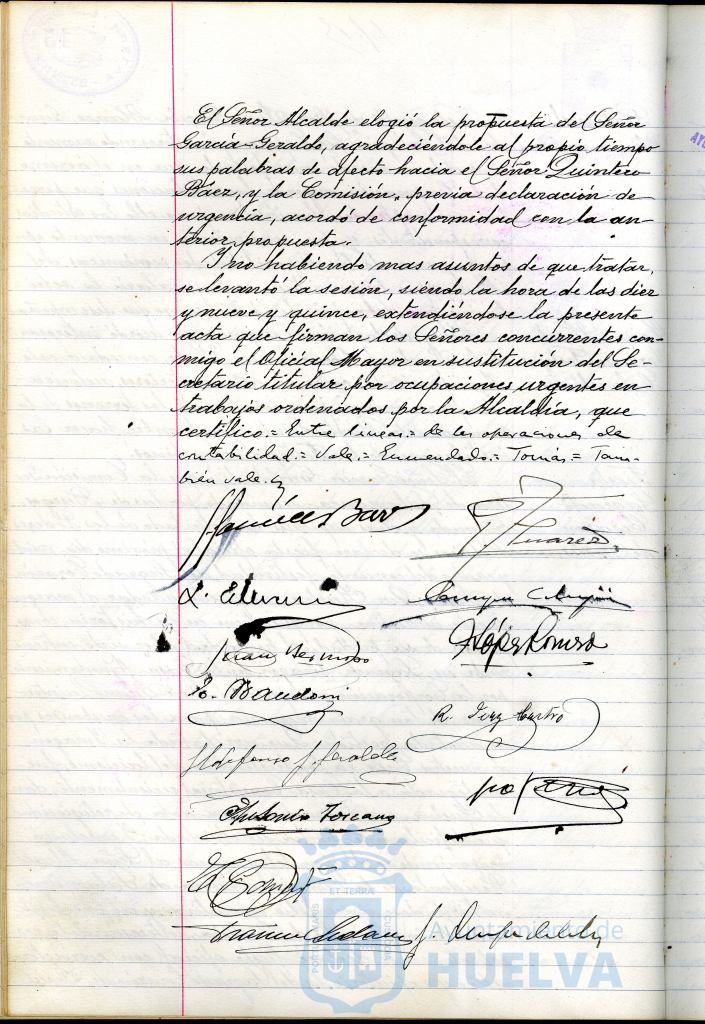 El Señor Alcalde elogió la propuesta del Señor
García-Geraldo, agradeciéndole al propio tiempo
sus palabras de afecto hacia el Señor Quintero
Báez, y la Comisión, previa declaración de
urgencia, acordó de conformidad con la an-
terior propuesta.
Y no habiendo mas asuntos de que tratar,
se levantó la sesión, siendo la hora de las diez
y nueve y quince, extendiéndose la presente
acta que firman los Señores concurrentes con-
migo el Oficial Mayor en sustitución del Se-
cretario titular por ocupaciones urgentes en
trabajos ordenados por la Alcaldía, que
certifico.= Entre lineas.= de las operaciones de
contabilidad.= Vale.= Enmendado.= Tomás= Tam-
bién vale.
Suarez
Juan Bermoso
López Romero
R. Castro
Ildefonso G. Geraldo
Antonio Toscano
ET TERRA
Ayuntamiento de
HUELVA